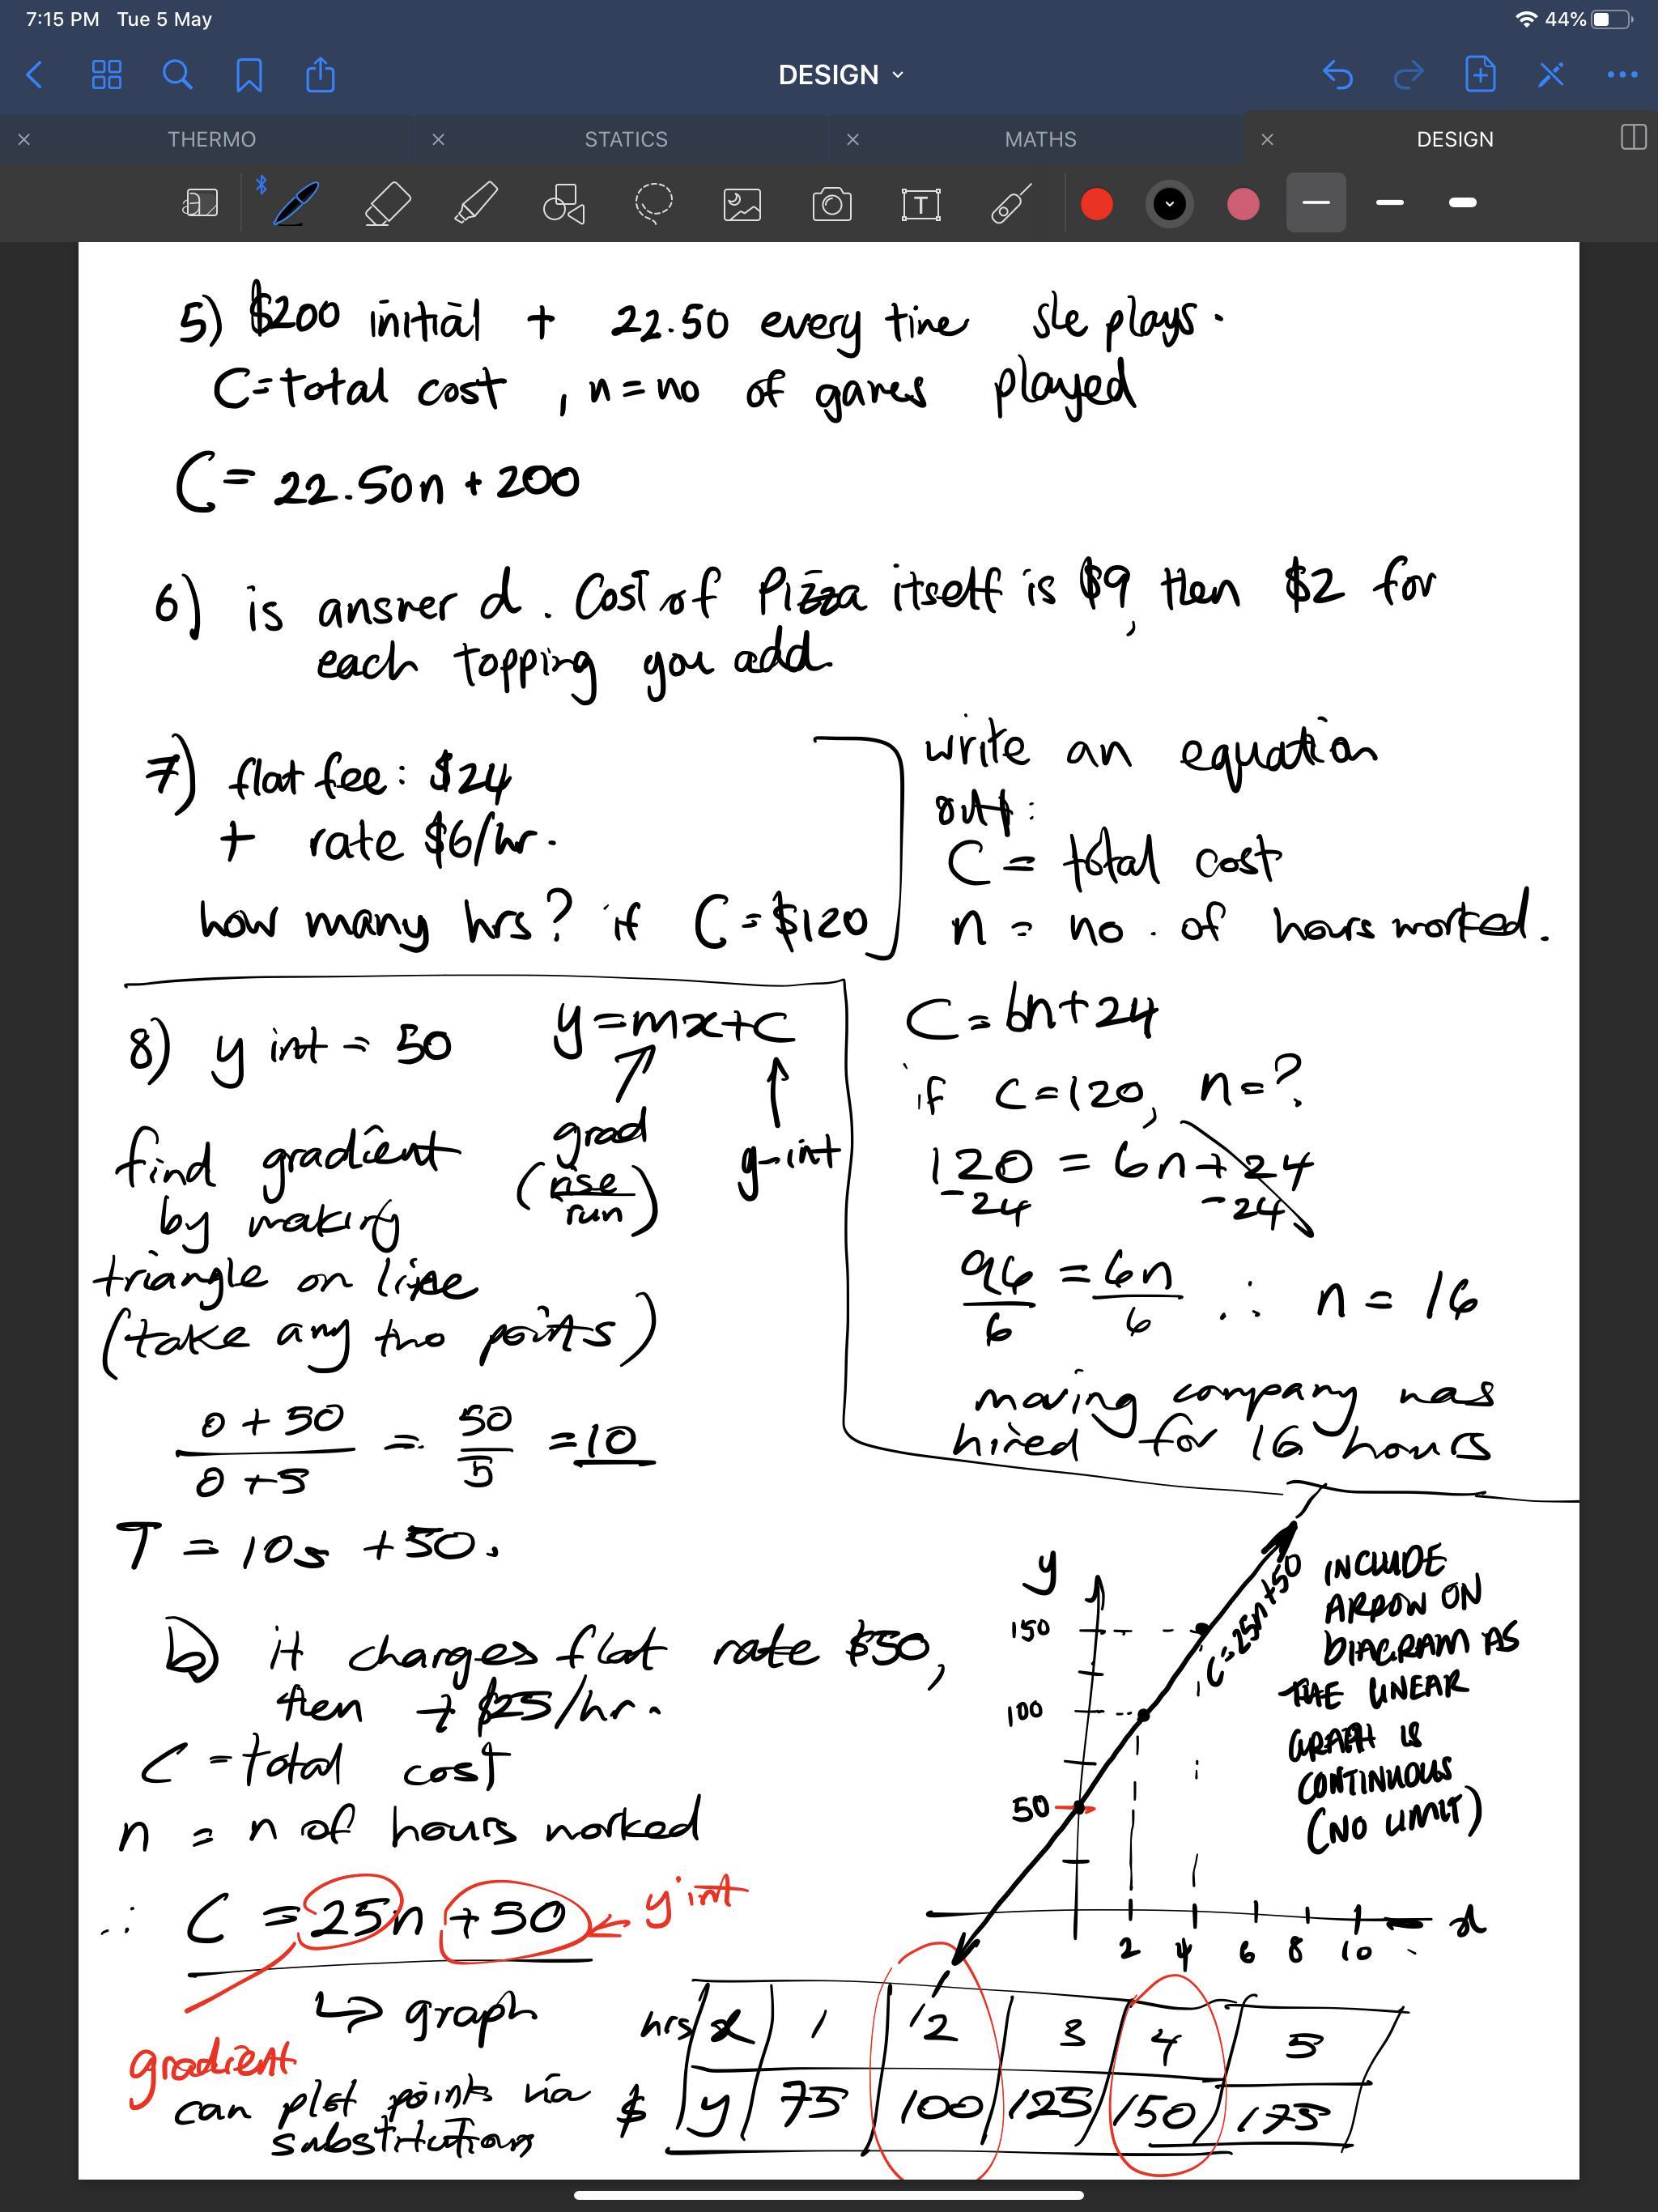 7:15 PM Tue 5 May
44%
DESIGN
THERMO
STATICS
MATHS
DESIGN
5) $200 initial + 22.50 every time she plays.
C=total cost , n=no of games played
C= 22.50n + 200
6) is answer d. Cost of Pizza itself is $9, then $2 for
each topping you add
7) flat fee: $24
+ rate $6/hr.
how many hrs? if C=$120
write an equation
out:
C = total cost
n = no. of hours worked.
C=6n+24
if C=120, n=?
120 = 6n+24
-24 -24
96/6 = 6n/6 ∴ n = 16
moving company was
hired for 16 hours
8) y int = 50
y=mx+c
grad
(rise/run)
y-int
find gradient
by making
triangle on line
(take any two points)
0+50/0+5 = 50/5 = 10
T = 10s +50.
b) it charges flat rate $50,
then + $25/hr.
C = total cost
n = n of hours worked
∴ C = 25n + 50
y int
gradient
↳ graph
can plot points via
substitution
y
150
100
50
2 4 6 8 10
x
C=25n+50
INCLUDE
ARROW ON
DIAGRAM AS
THE LINEAR
GRAPH IS
CONTINUOUS
(NO LIMIT)
hrs x 1 2 3 4 5
$ y 75 100 125 150 175